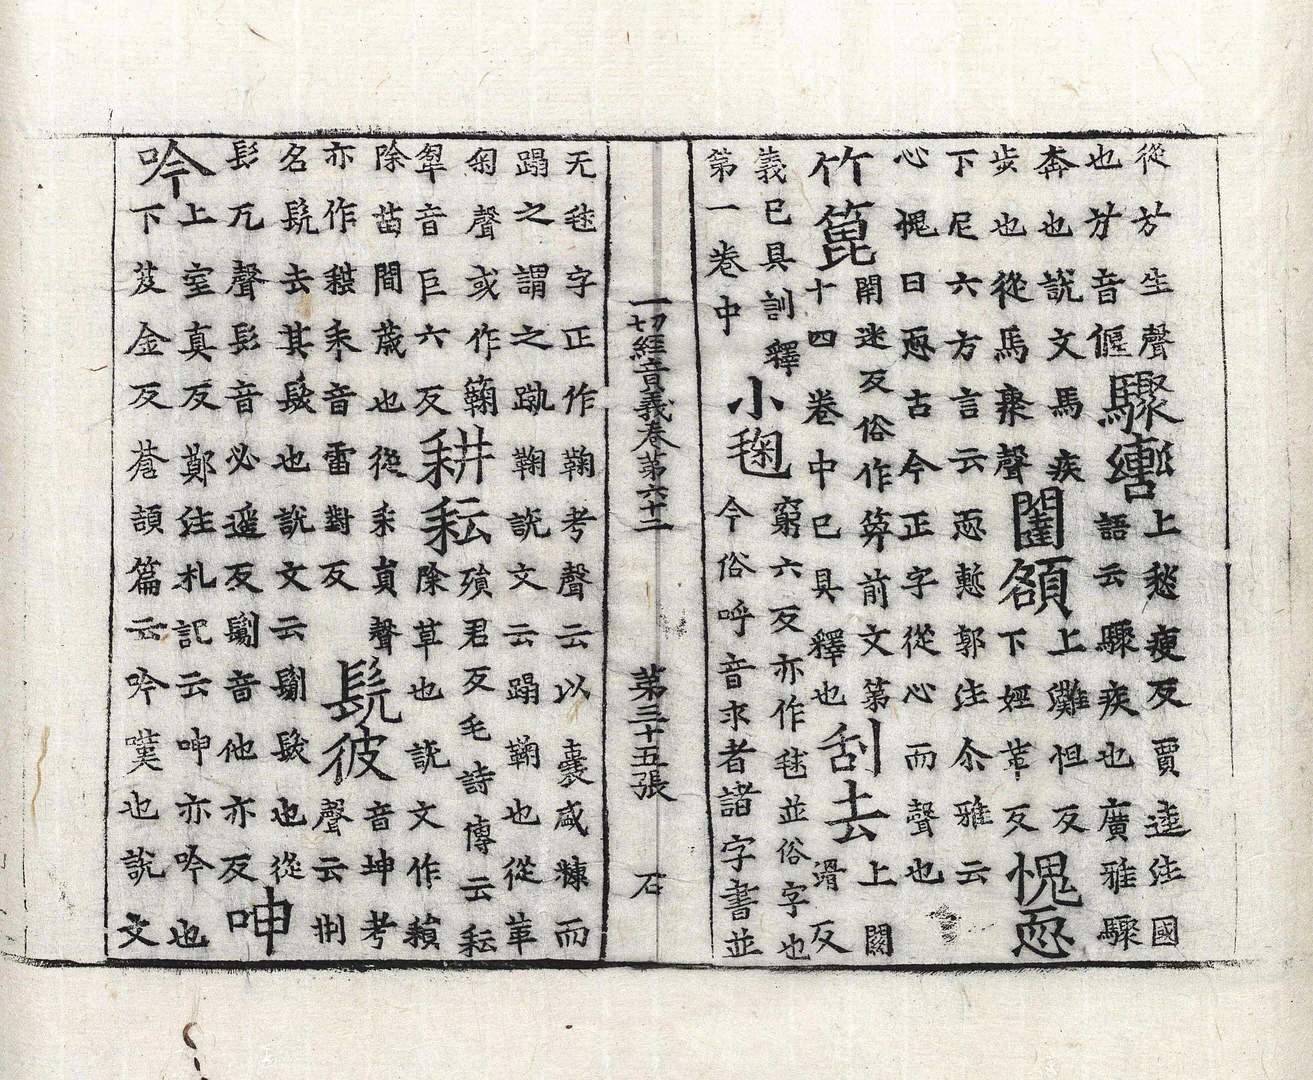 從艻生聲
也艻音偃驟轡上愁瘦反賈逵注國
奔也說文馬疾語云驟疾也廣雅驟
步也從馬聚聲閫額上灘怛反
下尼六方言云恧慙郭注尒雅云下婬革反愧恧
心愧曰恧古今正字從心而聲也
竹篦閉迷反俗作筭前文第刮去上關
十四卷中已具釋也滑反
義已具訓釋小毱窮六反亦作毬並俗字也
第一卷中今俗呼音求者諸字書並
一切經音義卷第六十二 第三十五張 石
无毬字正作鞠考聲云以囊咸糠而
蹋之謂之蹴鞠說文云蹋鞠也從革
匊聲或作𥶶耕耘殞君反毛詩傳云耘
犂音巨六反除草也說文作𧂐
除苗間薉也從耒員聲髡彼音坤考
亦作耘耒音雷對反聲云刑
名髡去其髮也說文云鬀髮也從
髟兀聲髟音必遥反鬀音他亦反呻
吟上室真反鄭注札記云呻亦吟也
下芨金反蒼頡篇云吟嘆也說文